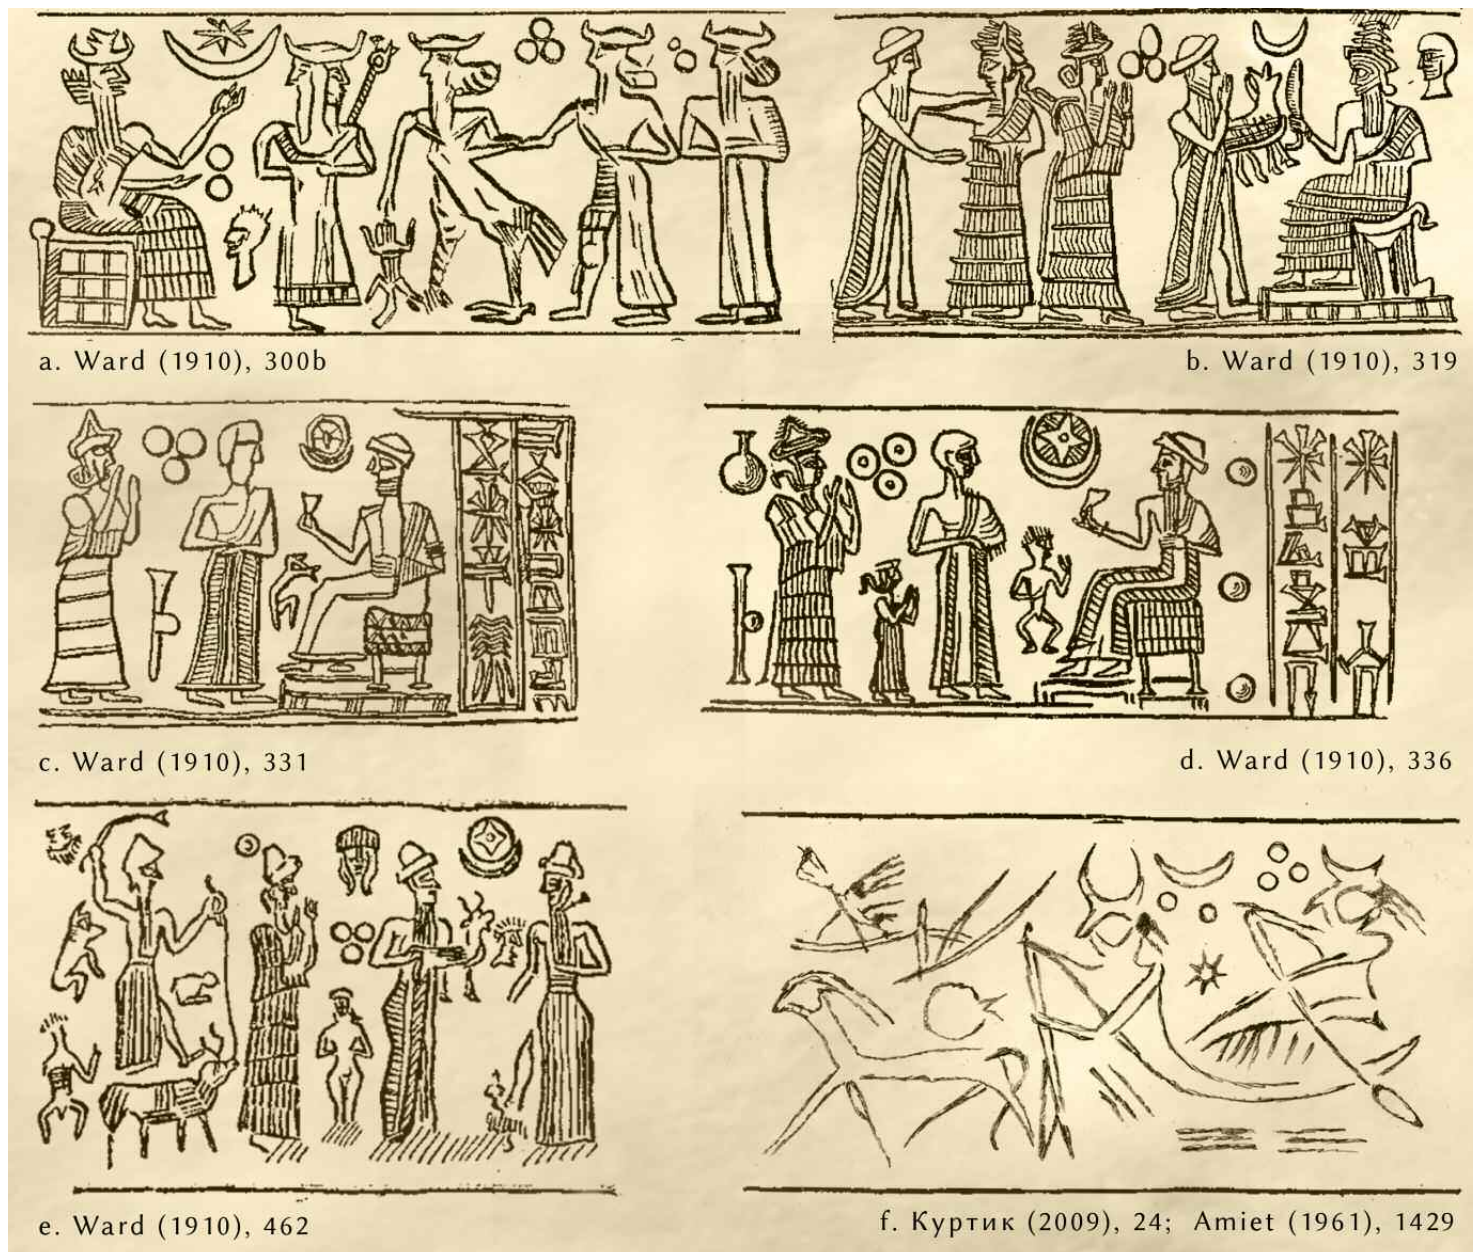 a. Ward (1910), 300b
b. Ward (1910), 319
c. Ward (1910), 331
d. Ward (1910), 336
e. Ward (1910), 462
f. Куртик (2009), 24; Amiet (1961), 1429